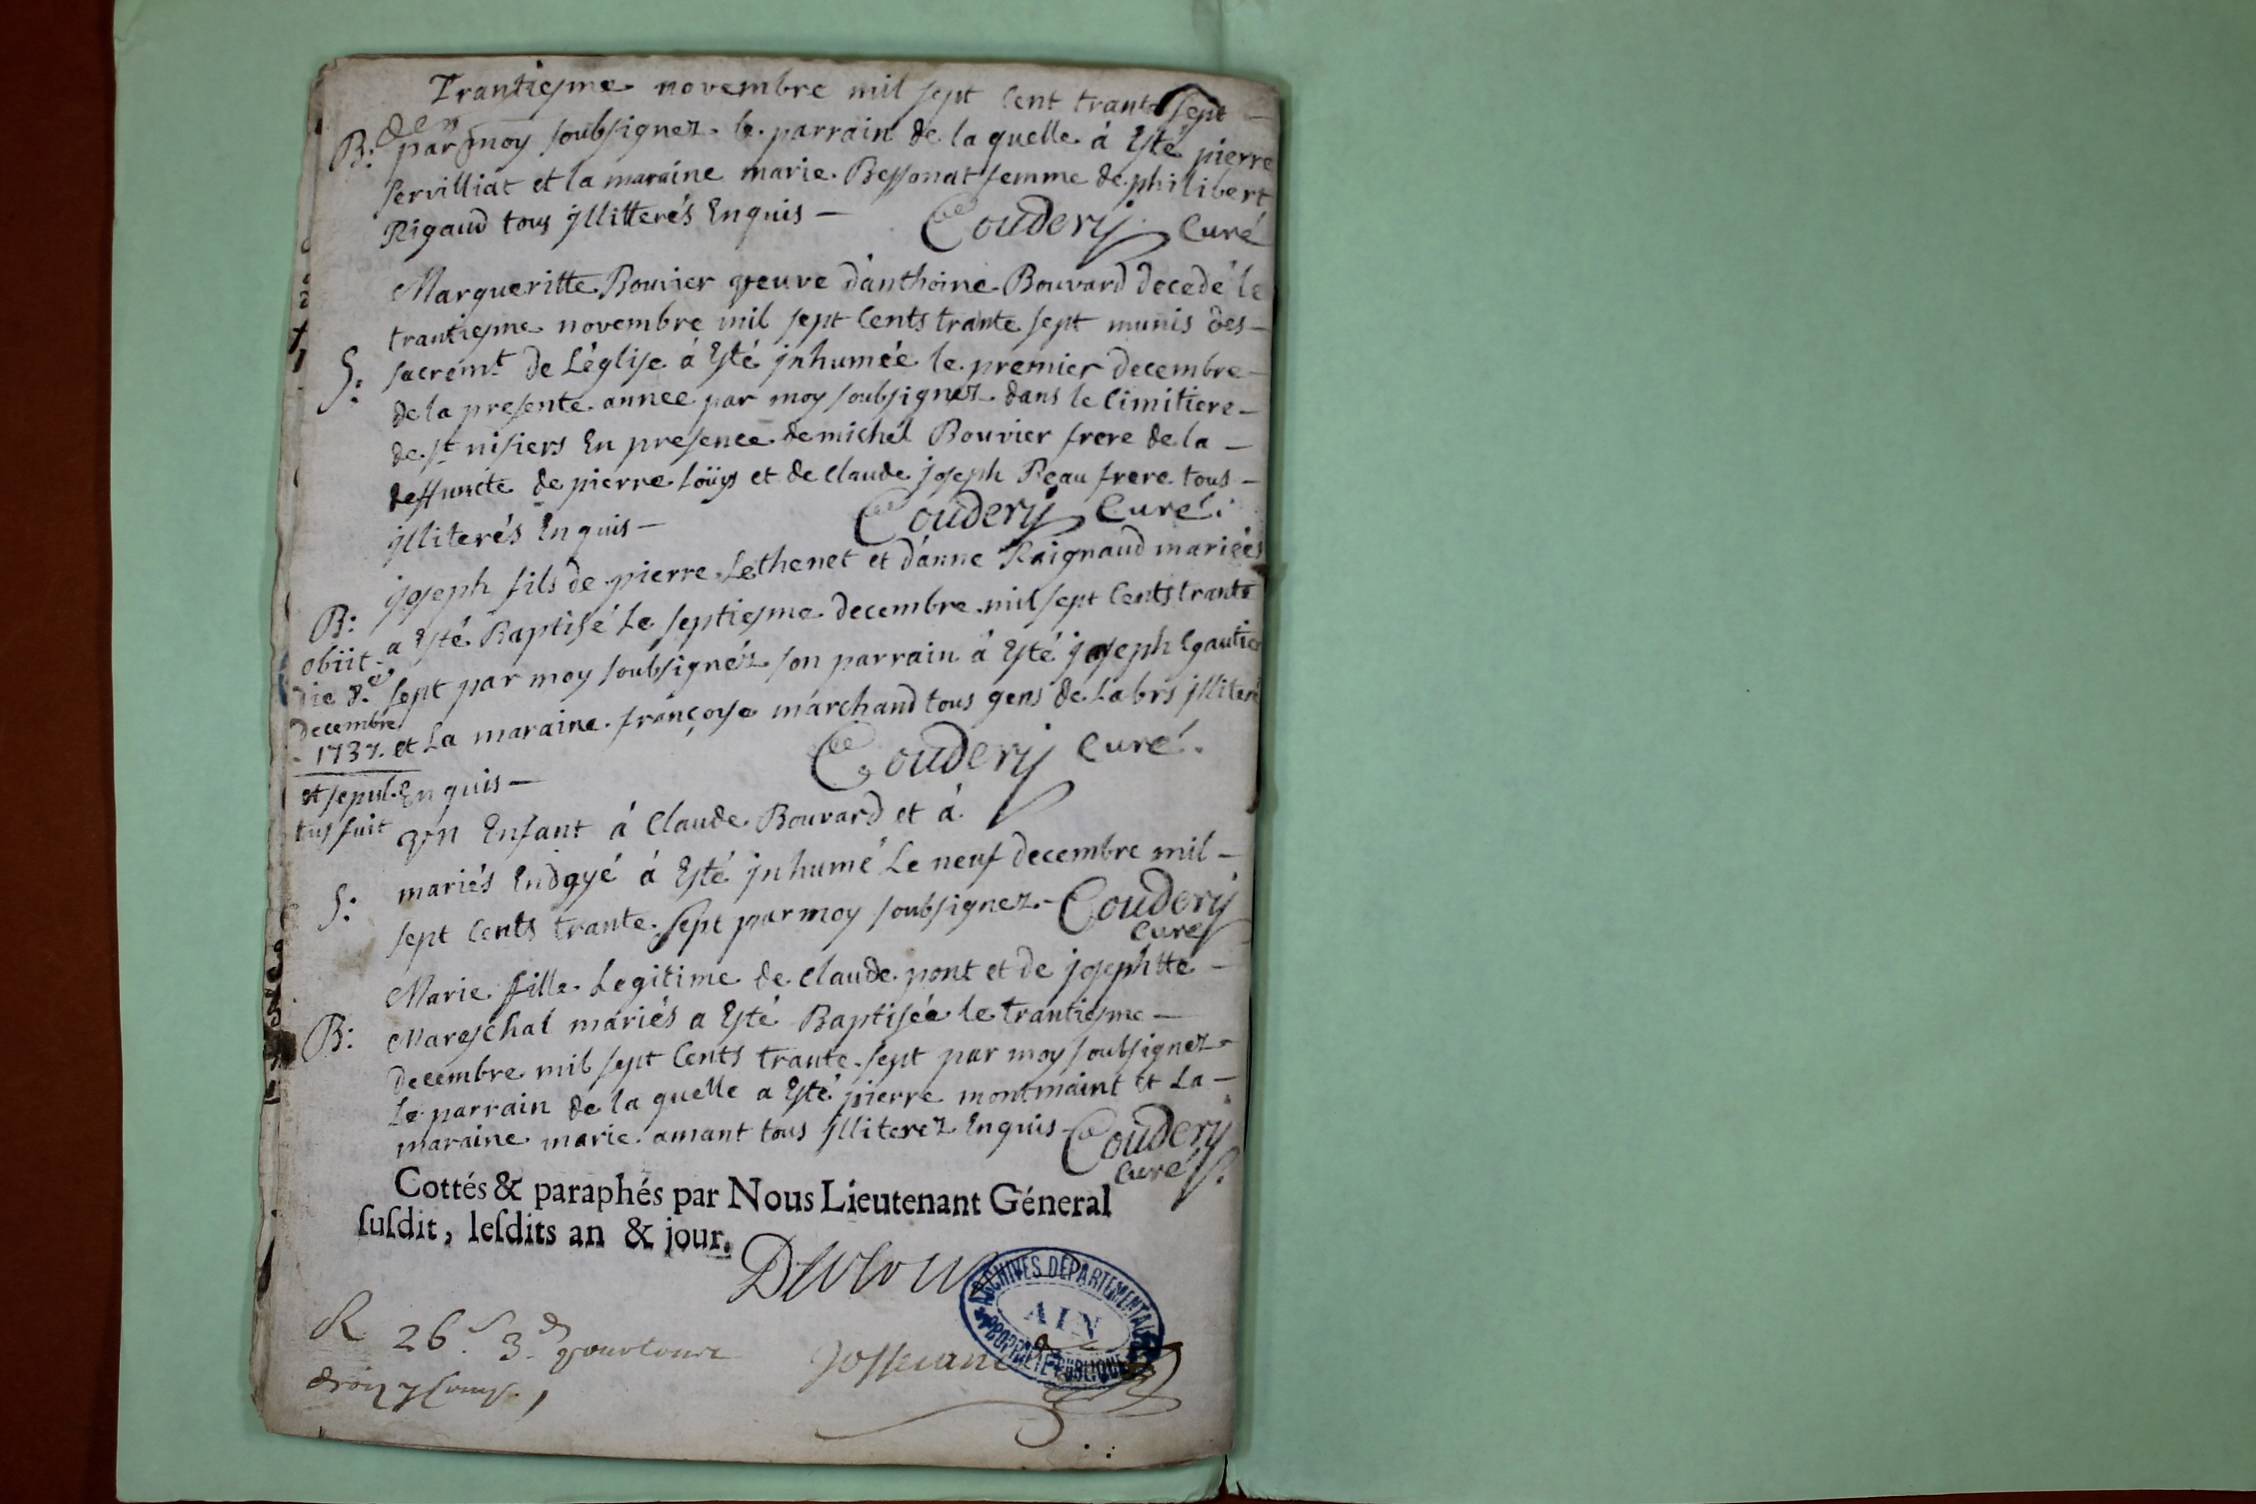 Trantiesme novembre mil sept Cent trante sept —
B: par moy soubsignez le parrain de la quelle à Esté pierre
servilliat et la maraine marie Bessonat femme de philibert
Rigaud tous jllitterés Enquis — Coudery Curé
Margueritte Bouvier veuve d'anthoine Bouvard decedé le
trantiesme novembre mil sept Cents trante sept munis des —
S: sacremt de L'église à Esté jnhumée le premier decembre —
de la presente annee par moy soubsignez dans le Cimitiere —
de st nisiers En presence de michel Bouvier frere de la —
deffuncte de pierre Loüys et de Claude joseph Beau frere tous —
jlliterés Enquis — Coudery Curé.
joseph fils de pierre Lethenet et d'anne Raignaud mariées
B: a Esté Baptisé Le septiesme decembre mil sept Cents trante
sept par moy soubsignéz son parrain à Esté joseph
et La maraine françoyse marchand tous gens de Labrs jlliteré
Enquis — Coudery Curé.
obiit
die 8e
decembre
1737.
et sepul-
tus fuit
vn Enfant à Claude Bouvard et à
S: mariés Endoyé à Esté jnhumé Le neuf decembre mil —
sept Cents trante sept par moy soubsignez — Coudery
Curé
Marie fille Legitime de Claude pont et de josephtte —
B: Mareschal mariés a Esté Baptisée le trantiesme —
decembre mil sept Cents trante sept par moy soubsignez
Le parrain de la quelle a Esté pierre montmaint et La —
maraine marie amant tous jlliterez Enquis — Coudery
Curé
Cottés & paraphés par Nous Lieutenant Géneral
ſuſdit, leſdits an & jour.
R 26s 3d
ARCHIVES DÉPARTEMENTALES
AIN
PROPRIÉTÉ PUBLIQUE